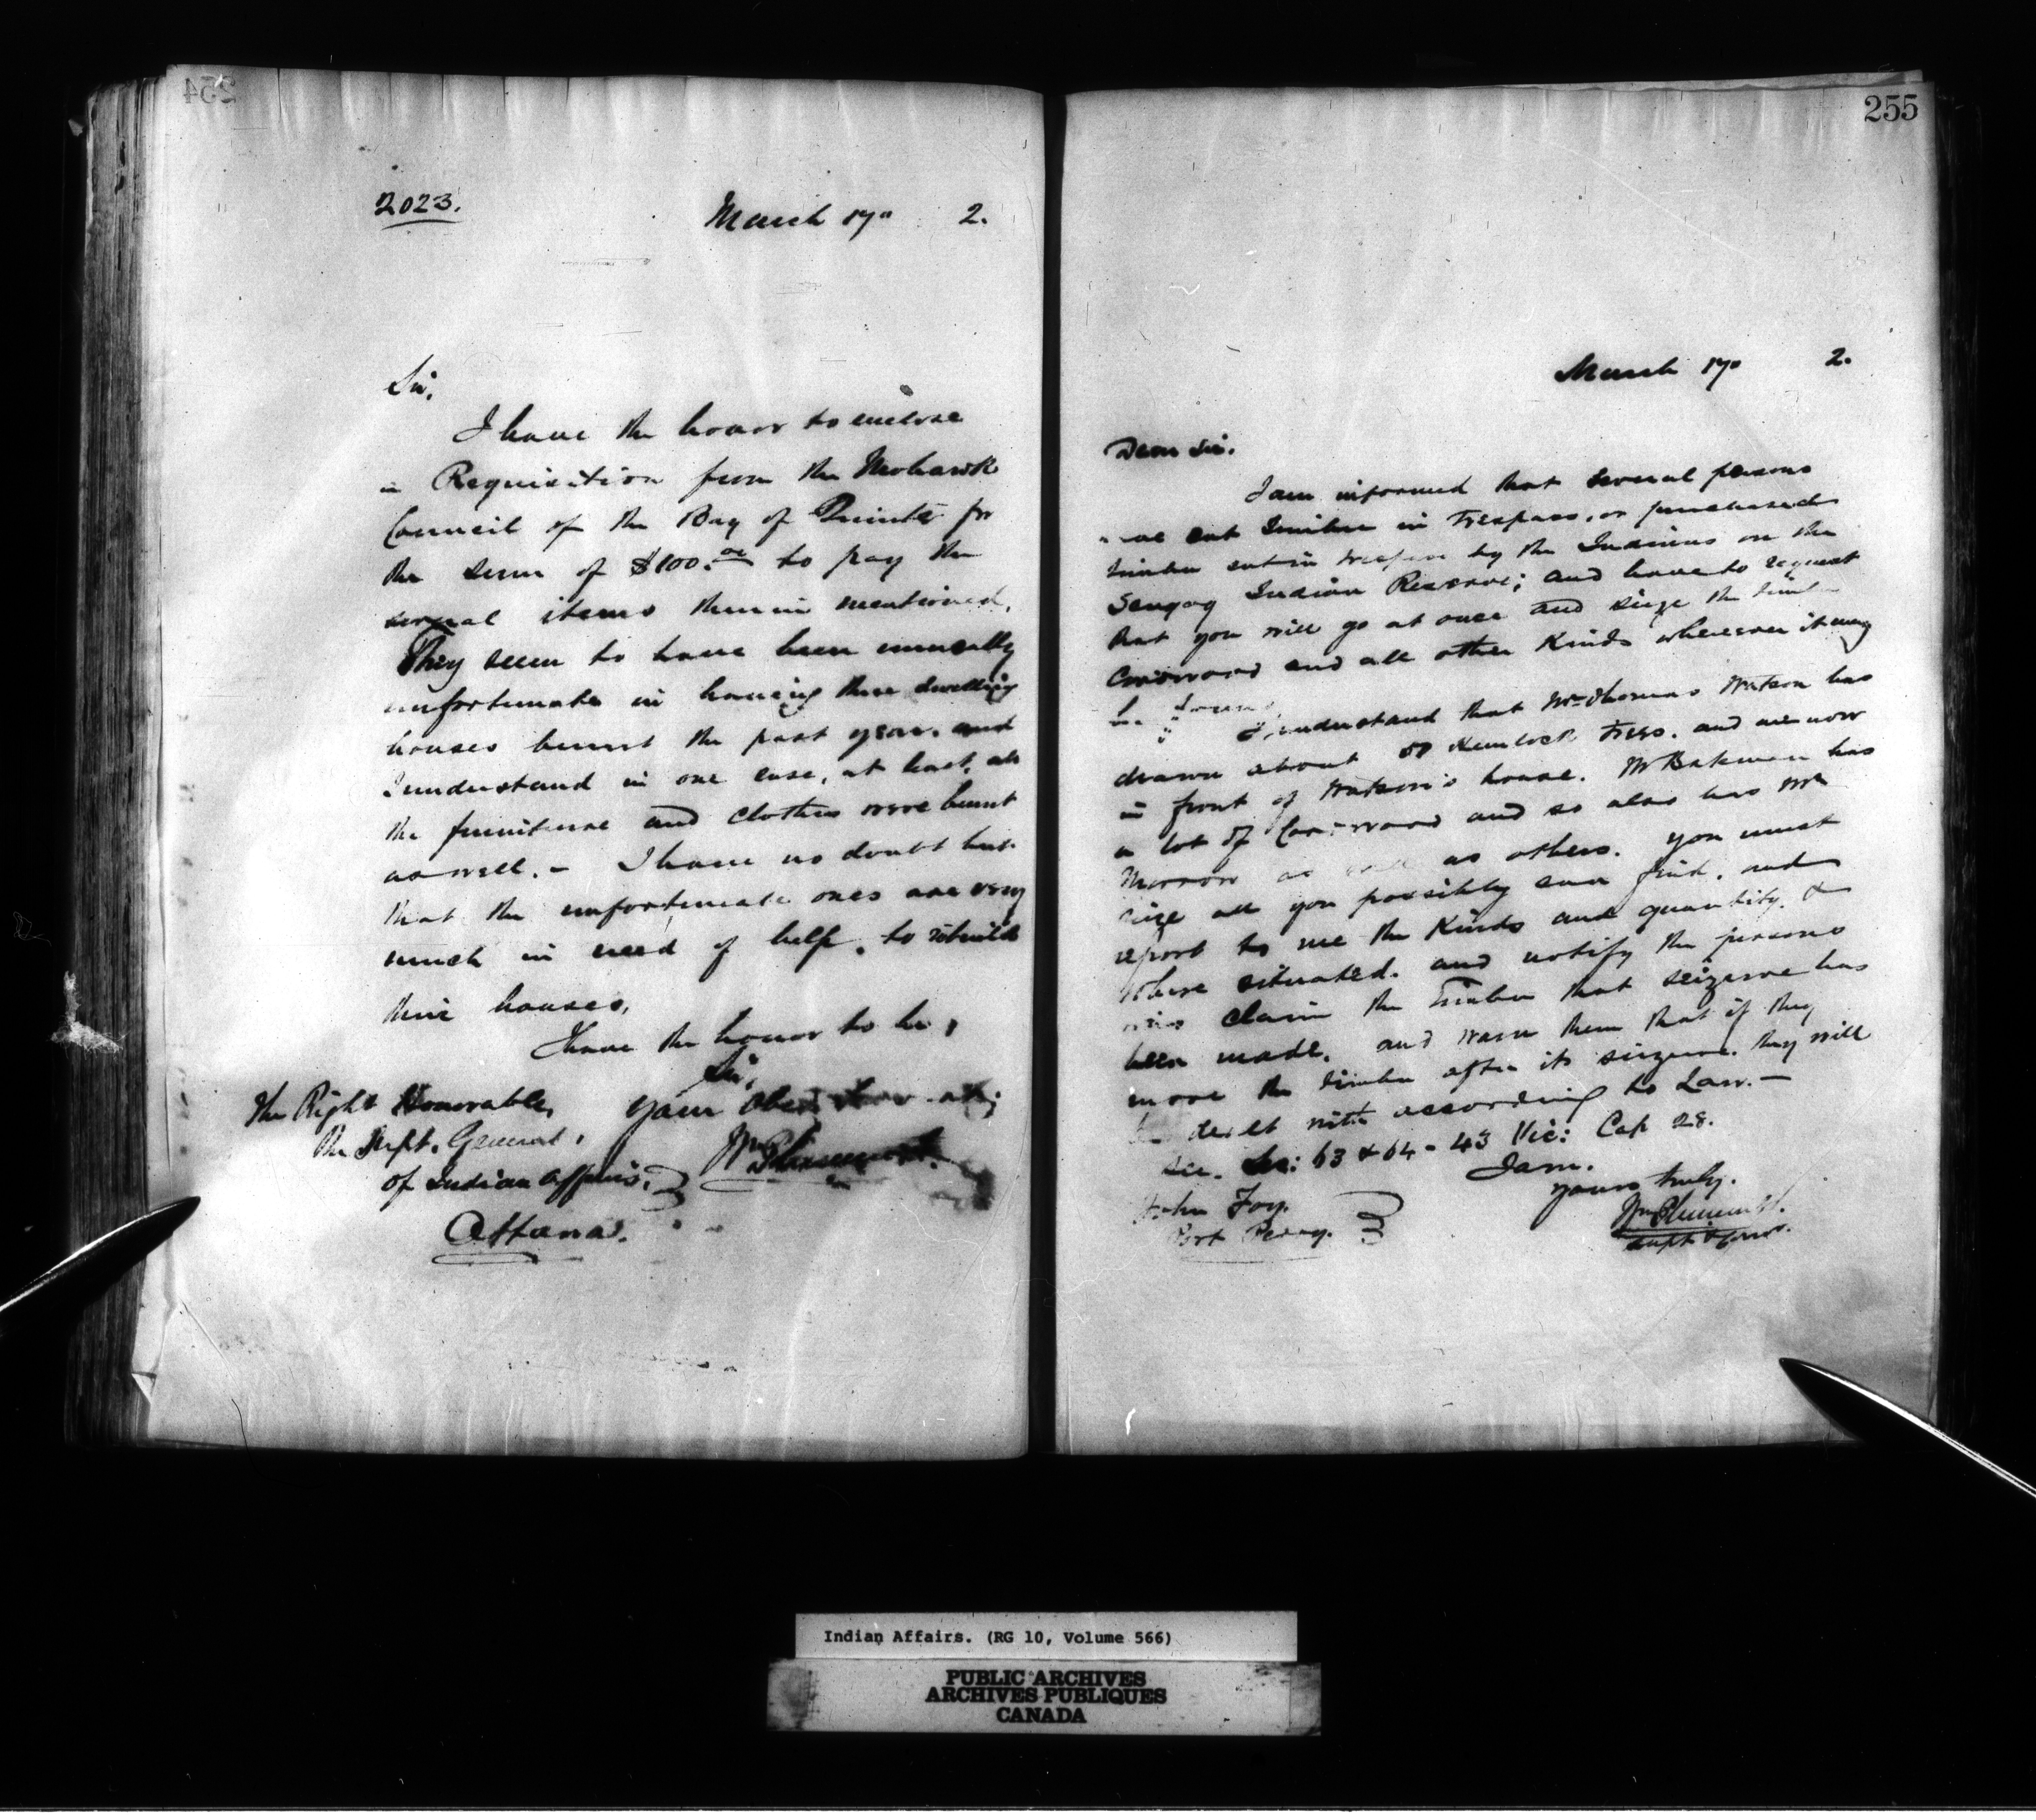 254
2023.
March 17" 2.
Sir,
I have the honor to enclose
a Requisition from the Mohawk
Council of the Bay of Quinte for
the sum of $100.00 to pay the
several items therein mentioned.
They seem to have been unusually
unfortunate in having their dwelling
houses burnt the past year, and
I understand in one case, at least, all
the furniture and clothes were burnt
as well. - I have no doubt but
that the unfortunate ones are very
much in need of help, to rebuild
their houses.
I have the honor to be,
Sir,
Your Obed
The Right Honorable,
The Supt. General,
of Indian Affairs,
Ottawa.
Wm Plummer
255
March 17" 2.
Dear Sir.
I am informed that several persons
have cut timber in Trespass, or purchased
timber cut in trespass by the Indians on the
Scugog Indian Reserve; and have to request
that you will go at once and seize the timber
Cordwood and all other Kinds wherever it may
be found
I understand that Mr Thomas Watson has
drawn about 50 Hemlock Trees. and are now
in front of Watson's house. Mr Bateman has
a lot of Cordwood and so also has Mr
Morrow as well as others. You must
seize all you possibly can find, and
report to me the Kinds and quantity, &
where situated. and notify the persons
who claim the Timber that seizure has
been made, and warn them that if they
move the timber after its seizure. they will
be dealt with according to Law. -
See. Sec: 63 & 64 - 43 Vic: Cap 28.
I am.
Yours truly.
Wm Plummer.
Supt & Comr.
John Foy.
Port Perry.
Indian Affairs. (RG 10, Volume 566)
PUBLIC ARCHIVES
ARCHIVES PUBLIQUES
CANADA